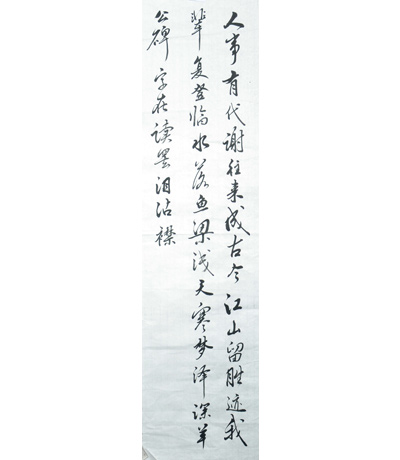 人事有代谢往来成古今江山留胜迹我
辈复登临水落鱼梁浅天寒梦泽深羊
公碑字在读罢泪沾襟